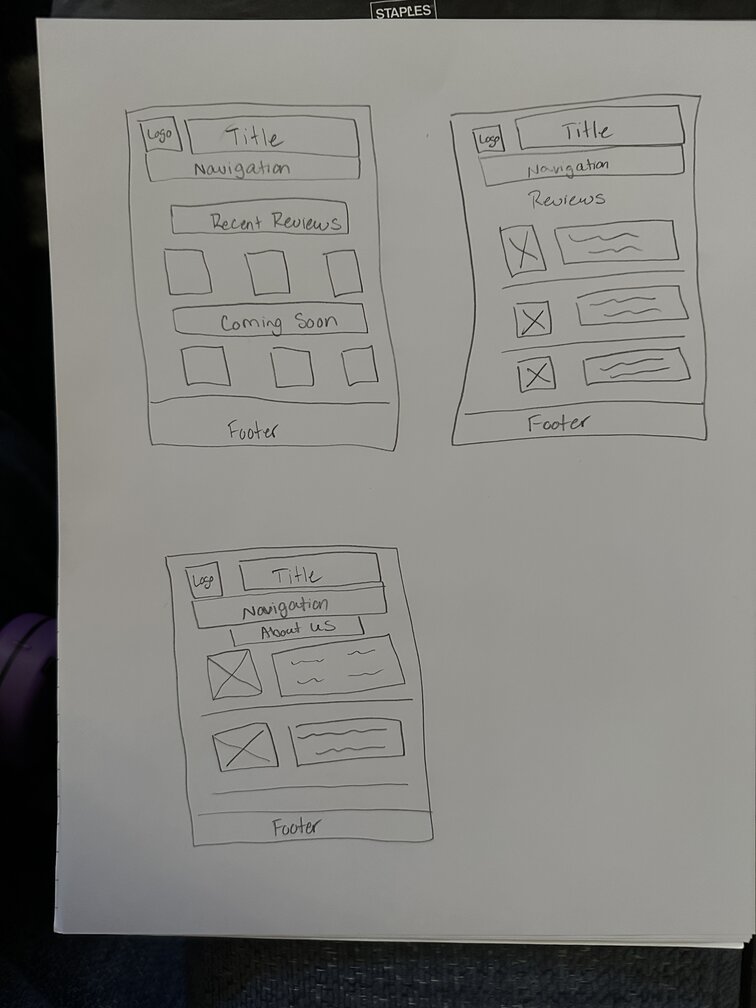 STAPLES
Logo Title
Navigation
Recent Reviews
Coming Soon
Footer
Logo Title
Navigation
Reviews
Footer
Logo Title
Navigation
About us
Footer